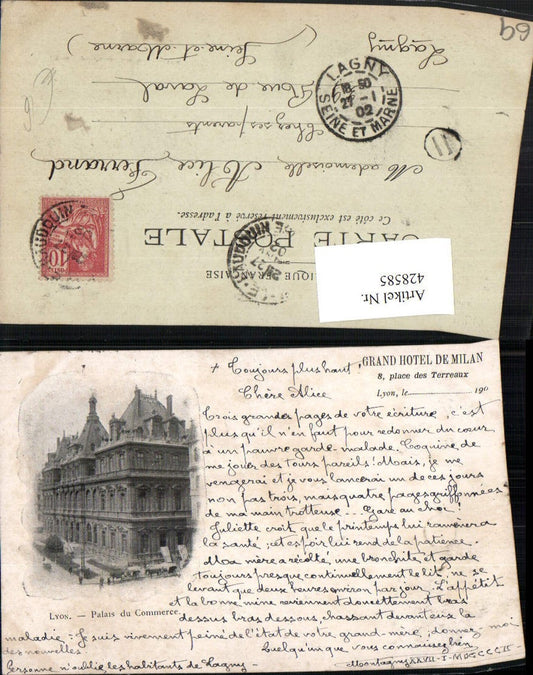 69
LAGNY
18 50
27 - 1
02
SEINE ET MARNE
11
Lagny
(Seine et Marne)
Rue de Laval
Chez ses parents
Mademoiselle Alice Ferrand
Ce côté est exclusivement réservé à l'adresse.
CARTE POSTALE
RÉPUBLIQUE FRANÇAISE
10
Artikel Nr.
428585
GRAND HOTEL DE MILAN
8, place des Terreaux
Lyon, le 190
+ Toujours plus haut !
Chère Alice
Trois grandes pages de votre écriture, c'est
plus qu'il n'en faut pour redonner du cœur
à un pauvre garde-malade. Coquine de
me jouer des tours pareils! Mais, je me
vengerai et je vous lancerai un de ces jours
non pas trois, mais quatre pages griffonnées
de ma main trotteuse... Gare au choc!
Juliette croit que le printemps lui ramènera
la santé; cet espoir lui rend de la patience.
Ma mère a récolté une bronchite et garde
toujours presque continuellement le lit, ne se
levant que deux heures environ par jour. L'appétit
et la bonne mine reviennent doucettement bras
dessus bras dessous, chassant devant eux la
maladie. Je suis vivement peiné de l'état de votre grand-mère; donnez moi
des nouvelles.
Quelqu'un que vous connaissez bien.
Personne n'oublie les habitants de Lagny
Montagny XXVII - I - MDCCCCII
LYON. — Palais du Commerce.